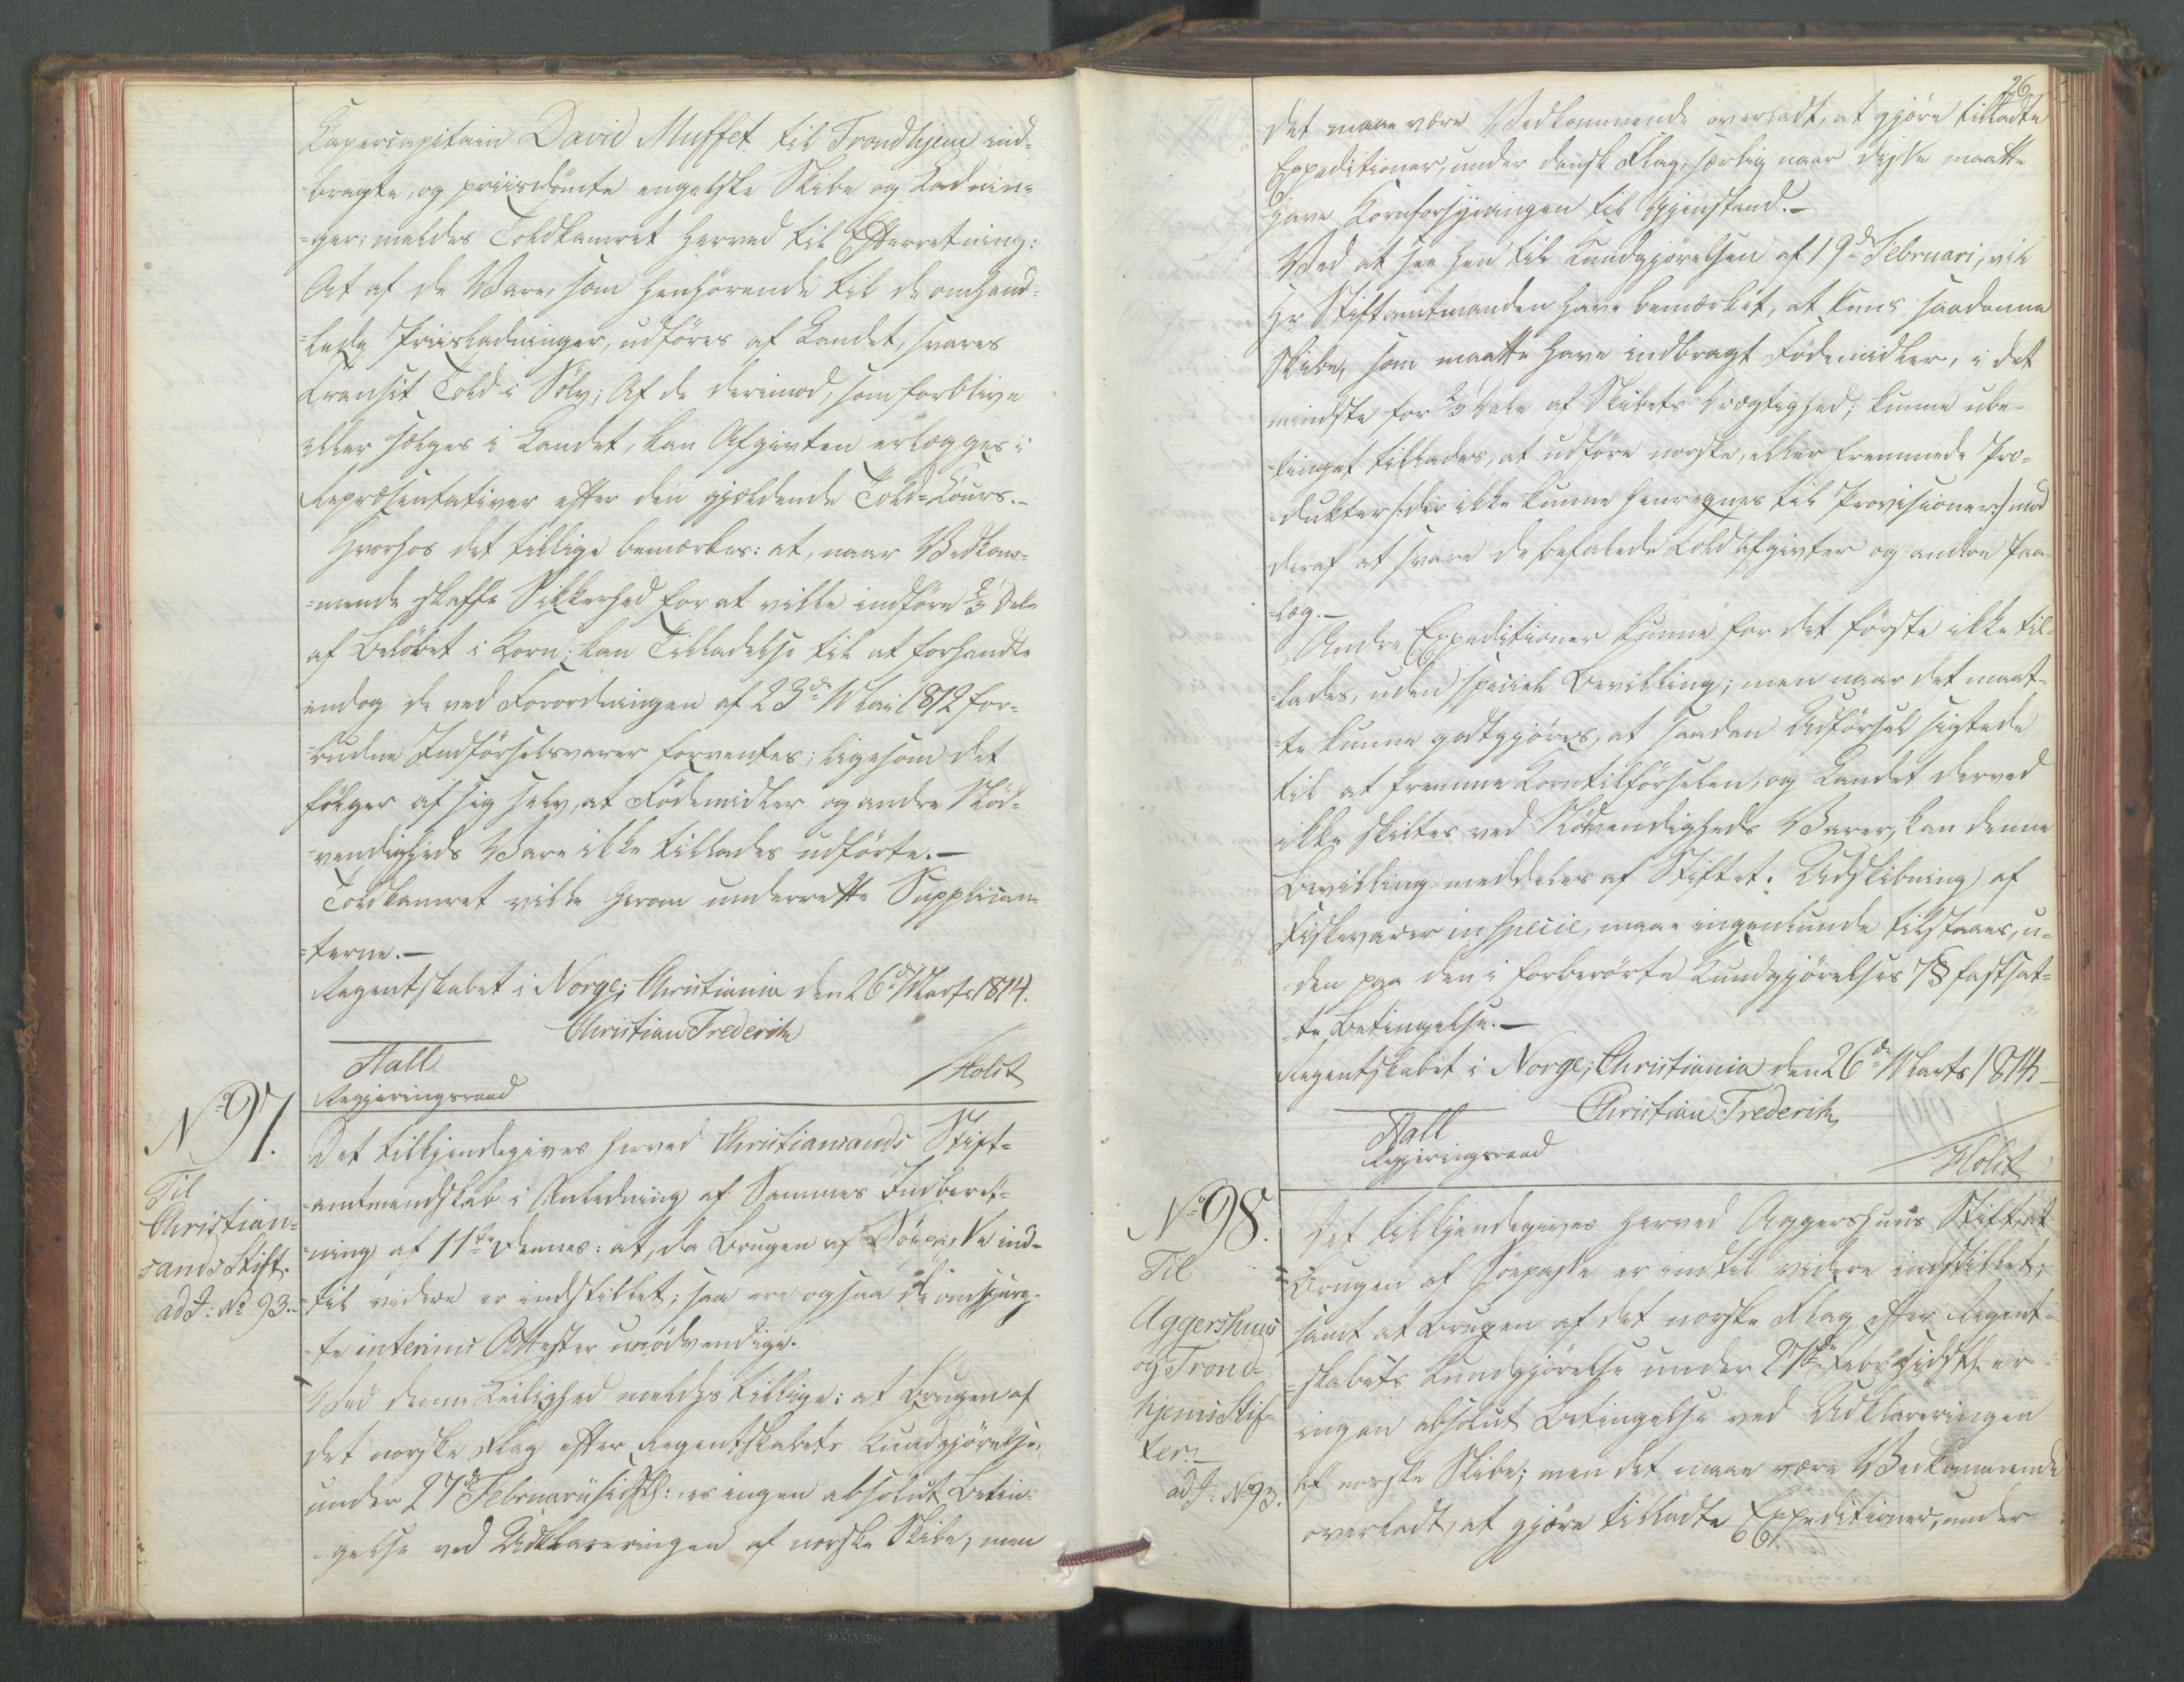 Capercapitain David Muffet til Trondhjem ind-
=bragte, og priisdömte engelske Skibe og Ladnin-
=ger; meldes Toldkamret herved til Efterretning:
At af de Vare, som henhörende til de omhand-
=lede Priisladninger, udföres af Landet, svares
Transit Told i Sölv; Af de derimod, som forblive
eller sælges i Landet, kan Afgivten erlægges i
Repræsentativer efter den gjældende Told-Cours.-
Hvorhos det tillige bemærkes: at, naar Vedkom-
=mende skaffe Sikkerhed for at ville indföre 2/3 Dele
af Belöbet i Korn; kan Tilladelse til at forhandle
endog de ved Forordningen af 23de Mai 1812 for-
=budne Indförselsvarer forventes; ligesom det
fölger af sig selv, at Födemidler og andre Nöd-
=vendigheds Vare ikke tillades udförte.-
Toldkamret ville herom underrette Supplican-
=terne.-
Regentskabet i Norge; Christiania den 26de Marts 1814.
Christian Frederik
Hall
Holst
Regjeringsraad
No 97.
Til
Christian-
sands Stift.
ad J: No 93.-
Det tilkjendegives herved Christiansands Stift-
=amtmandskab i Anledning af Sammes Indberet-
=ning af 11te dennes: at, da Brugen af Söepasse ind-
=til videre er indstillet; saa ere ogsaa de omspurg-
=te interims Attester unödvendige.
Ved denne Leilighed meldes tillige: at Brugen af
det norske Flag efter Regentskabets Kundgjörelse
under 27de Februarii sidstl: er ingen absolut Betin-
=gelse ved Udklareringen af norske Skibe; men
26
det maae være Vedkommende overladt, at gjöre tilladte
Expeditioner, under dansk Flag, særlig naar disse maatte
have Kornforsyningen til Gjenstand.-
Ved at see hen til Kundgjörelsen af 19de Februari, vil
Hr Stiftamtmanden have bemærket, at kuns saadanne
Skibe, som maatte have indbragt Födemidler, i det
mindste for 2/3 Dele af Skibets Drægtighed, kunne ube-
=tinget tillades, at udföre norske, eller fremmede Pro-
=dukter /: der ikke kunne henregnes til Provisioner :/ mod
deraf at svare de befalede Toldafgivter og andre Paa-
=læg.-
Andre Expeditioner kunne for det förste ikke til-
=lades, uden speciel Bevilling; men naar det maat-
=te kunne godtgjöres, at saadan Udförsel sigtede
til at fremme Korntilförselen, og Landet derved
ikke skiltes ved Nödvendigheds Varer, kan denne
Bevilling meddeles af Stiftet. Udskibning af
Fiskevarer in specie, maae ingenlunde tilstaaes, u-
=den paa den i forberörte Kundgjörelses 7§ fastsat-
=te Betingelse.-
Regentskabet i Norge; Christiania den 26de Marts 1814-
Christian Frederik
Hall
Regjeringsraad
Holst
No 98.
Til
Aggershuus
og Trond-
hjems Stif-
ter.-
ad J: No 93.
Det tilkjendegives herved Aggershuus Stift at
Brugen af Söepasse er indtil videre indstillet;
samt at Brugen af det norske Flag efter Regent-
=skabets Kundgjörelse under 27de Febr sidstl. er
ingen absolut Betingelse ved Udklareringen
af norske Skibe; men det maae være Vedkommende
overladt, at gjöre tilladte Expeditioner, under